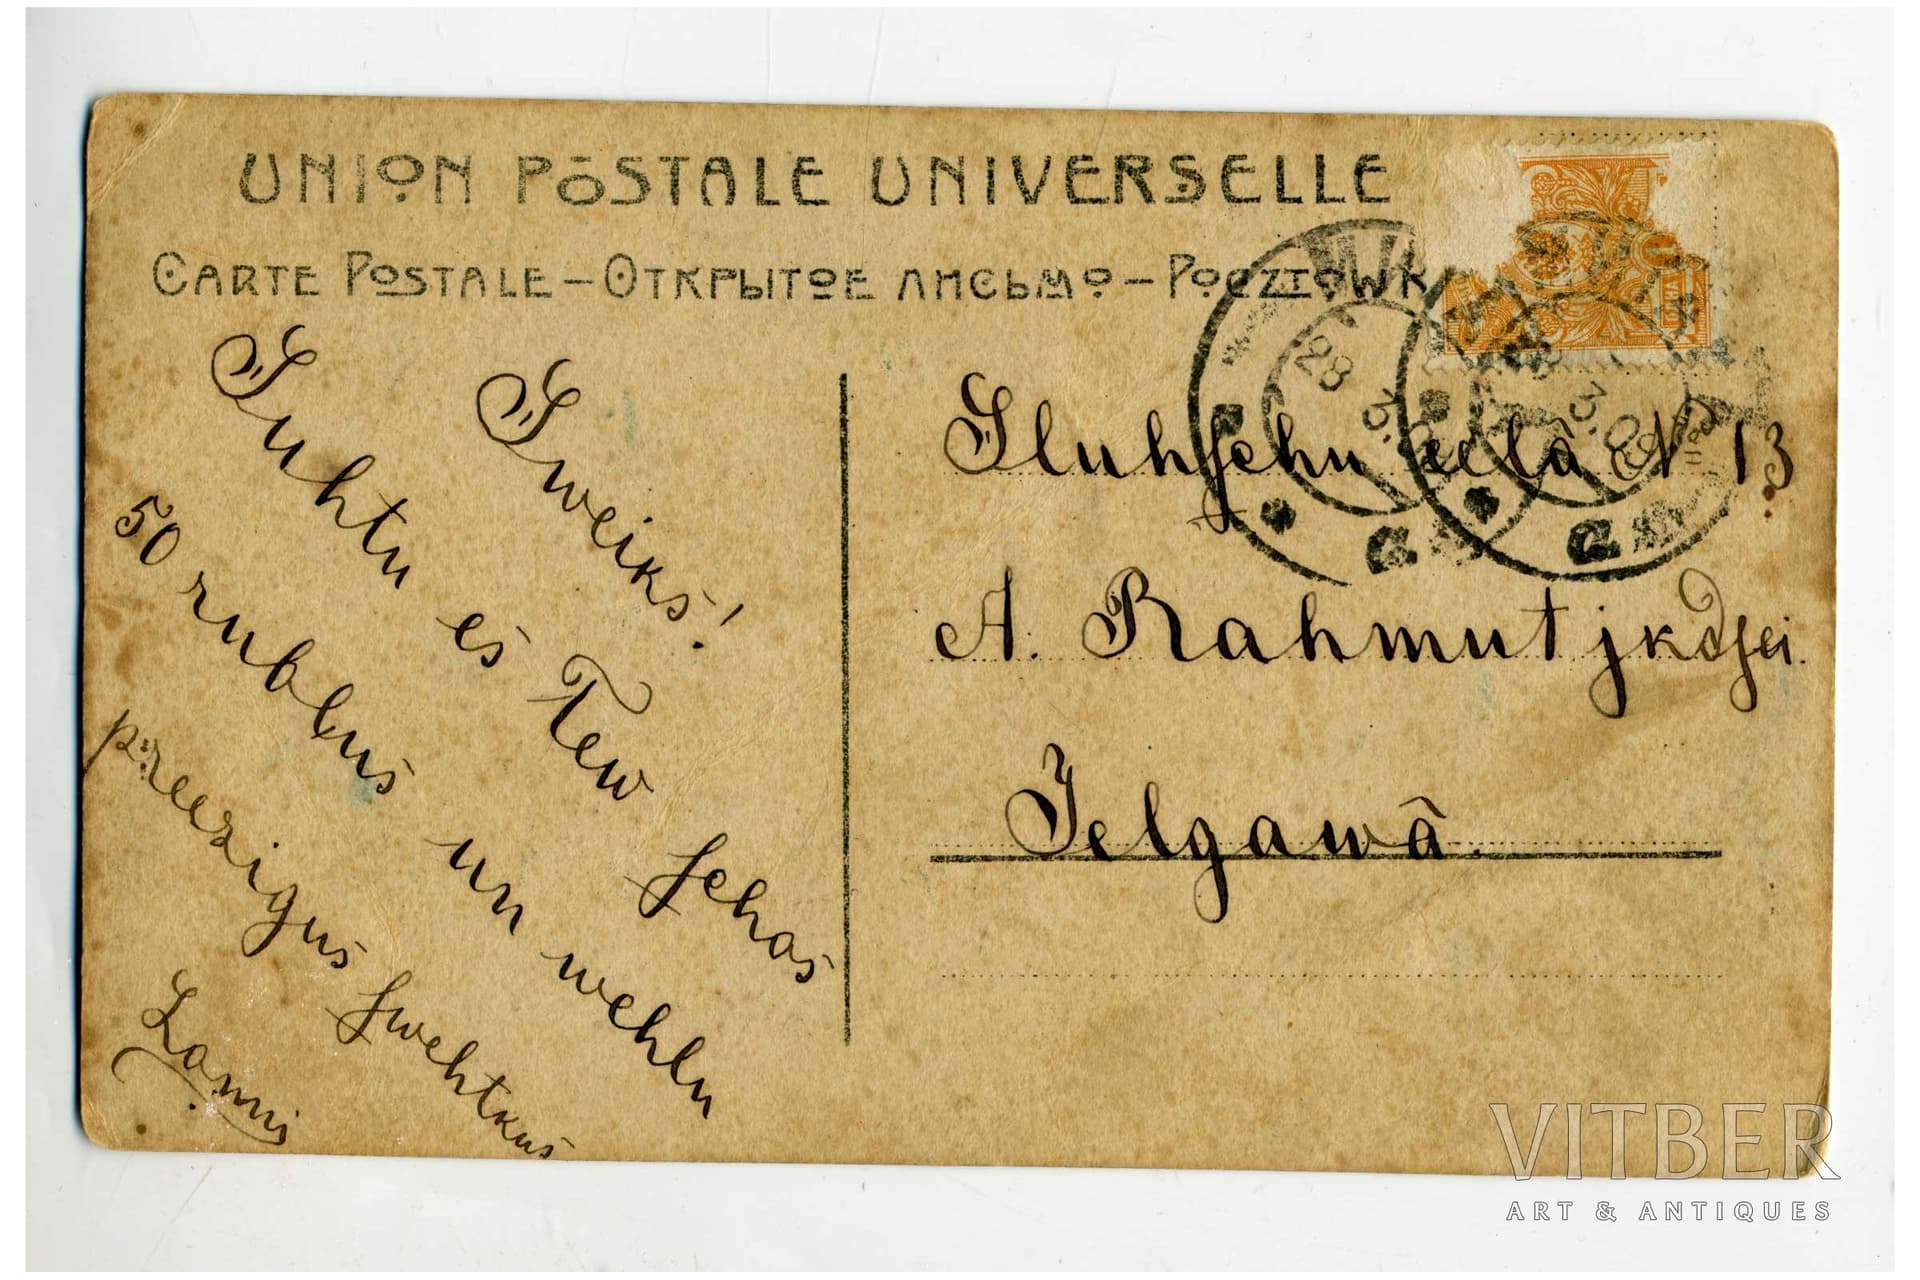 UNION POSTALE UNIVERSELLE
CARTE POSTALE – ОТКРЫТОЕ ПИСЬМО – POCZTOWK
Sweiks!
Suhtu es Tew schos
50 rublus un wehlu
preezigus swehtkus
Sluhschu eelâ N 13
A. Rahmut jkdsei.
Jelgawâ.
28 3.0
3.08
VITBER
ART & ANTIQUES